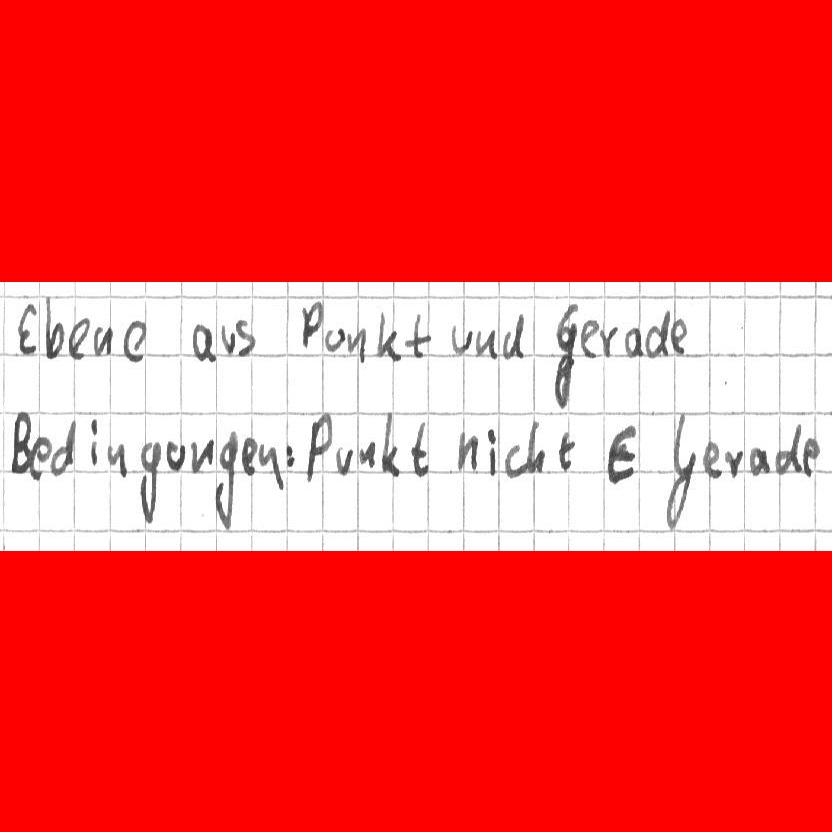 Ebene aus Punkt und Gerade
Bedingungen: Punkt nicht ∈ Gerade